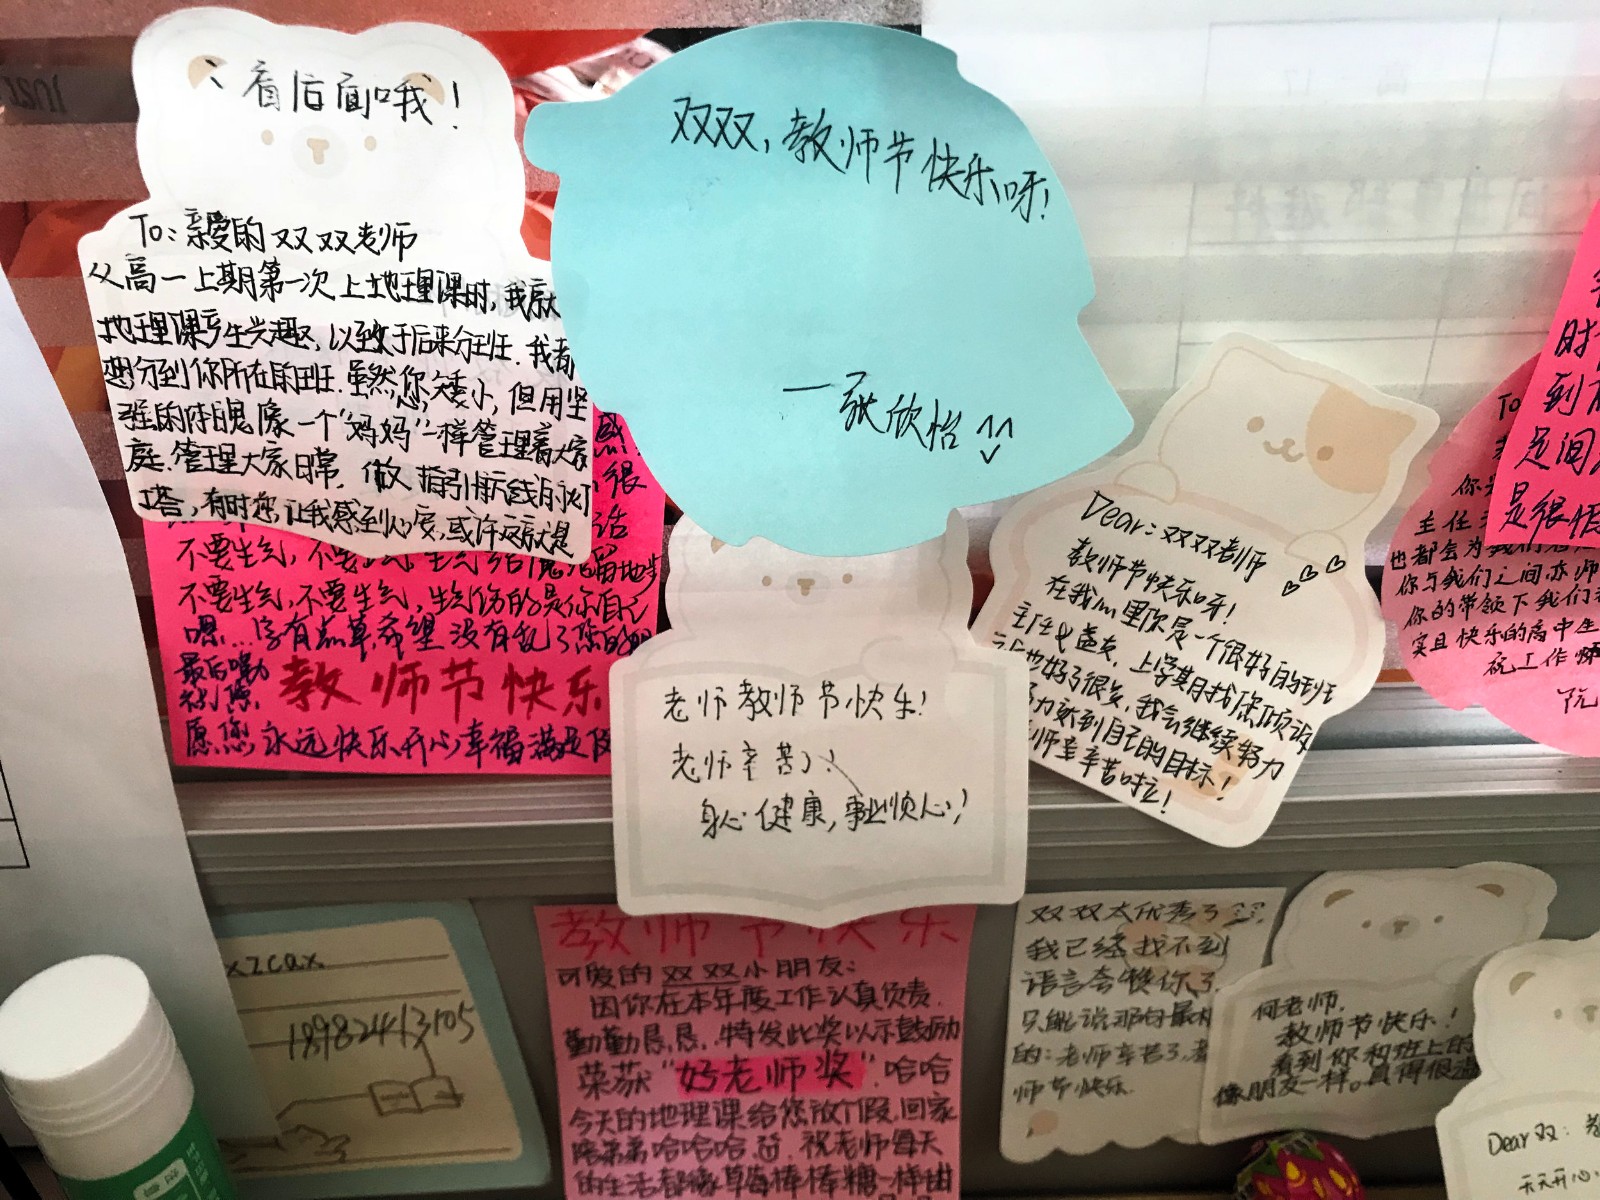 看后面哦!
To:亲爱的双双老师
从高一上期第一次上地理课时,我就
地理课产生兴趣,以致于后来分班.我都
想分到你所在的班.虽然您矮小,但用坚
强的体魄像一个"妈妈"一样管理着大家
庭.管理大家日常,做指引航线的灯
塔,有时您让我感到心疼,或许这就是
双双,教师节快乐呀!
一张欣怡
感
很
话
不要生气,不要生气
不要生气,不要生气,生气伤的是你自己
嗯...字有点草,希望没有乱了您的眼
最后嘞
祝您,
教师节快乐
愿您永远快乐开心幸福满足
老师教师节快乐!
老师辛苦了!
身心健康,事业顺心!
Dear:双双老师
教师节快乐呀!
在我心里你是一个很好的班
主任,上学期找你倾诉
之后也好了很多,我会继续努力
努力达到自己的目标!
老师辛苦啦!
时
到
是间
是很
To
你是
主任
也都会为我们
你与我们之间亦师
你的带领下我们
实且快乐的高中生
祝工作顺
阮
xzcax
18982413105
教师节快乐
可爱的双双小朋友:
因你在本年度工作认真负责.
勤勤恳恳,特发此奖以示鼓励
荣获"好老师奖".哈哈
今天的地理课给您放个假,回家
陪弟弟哈哈哈.祝老师每天
的生活都像草莓棒棒糖一样甜
双双太优秀了
我已经找不到
语言夸赞你了.
只能说那句最朴
的:老师辛苦了,教
师节快乐.
何老师,
教师节快乐!
看到你和班上的
像朋友一样。真得很温
Dear双:
天天开心